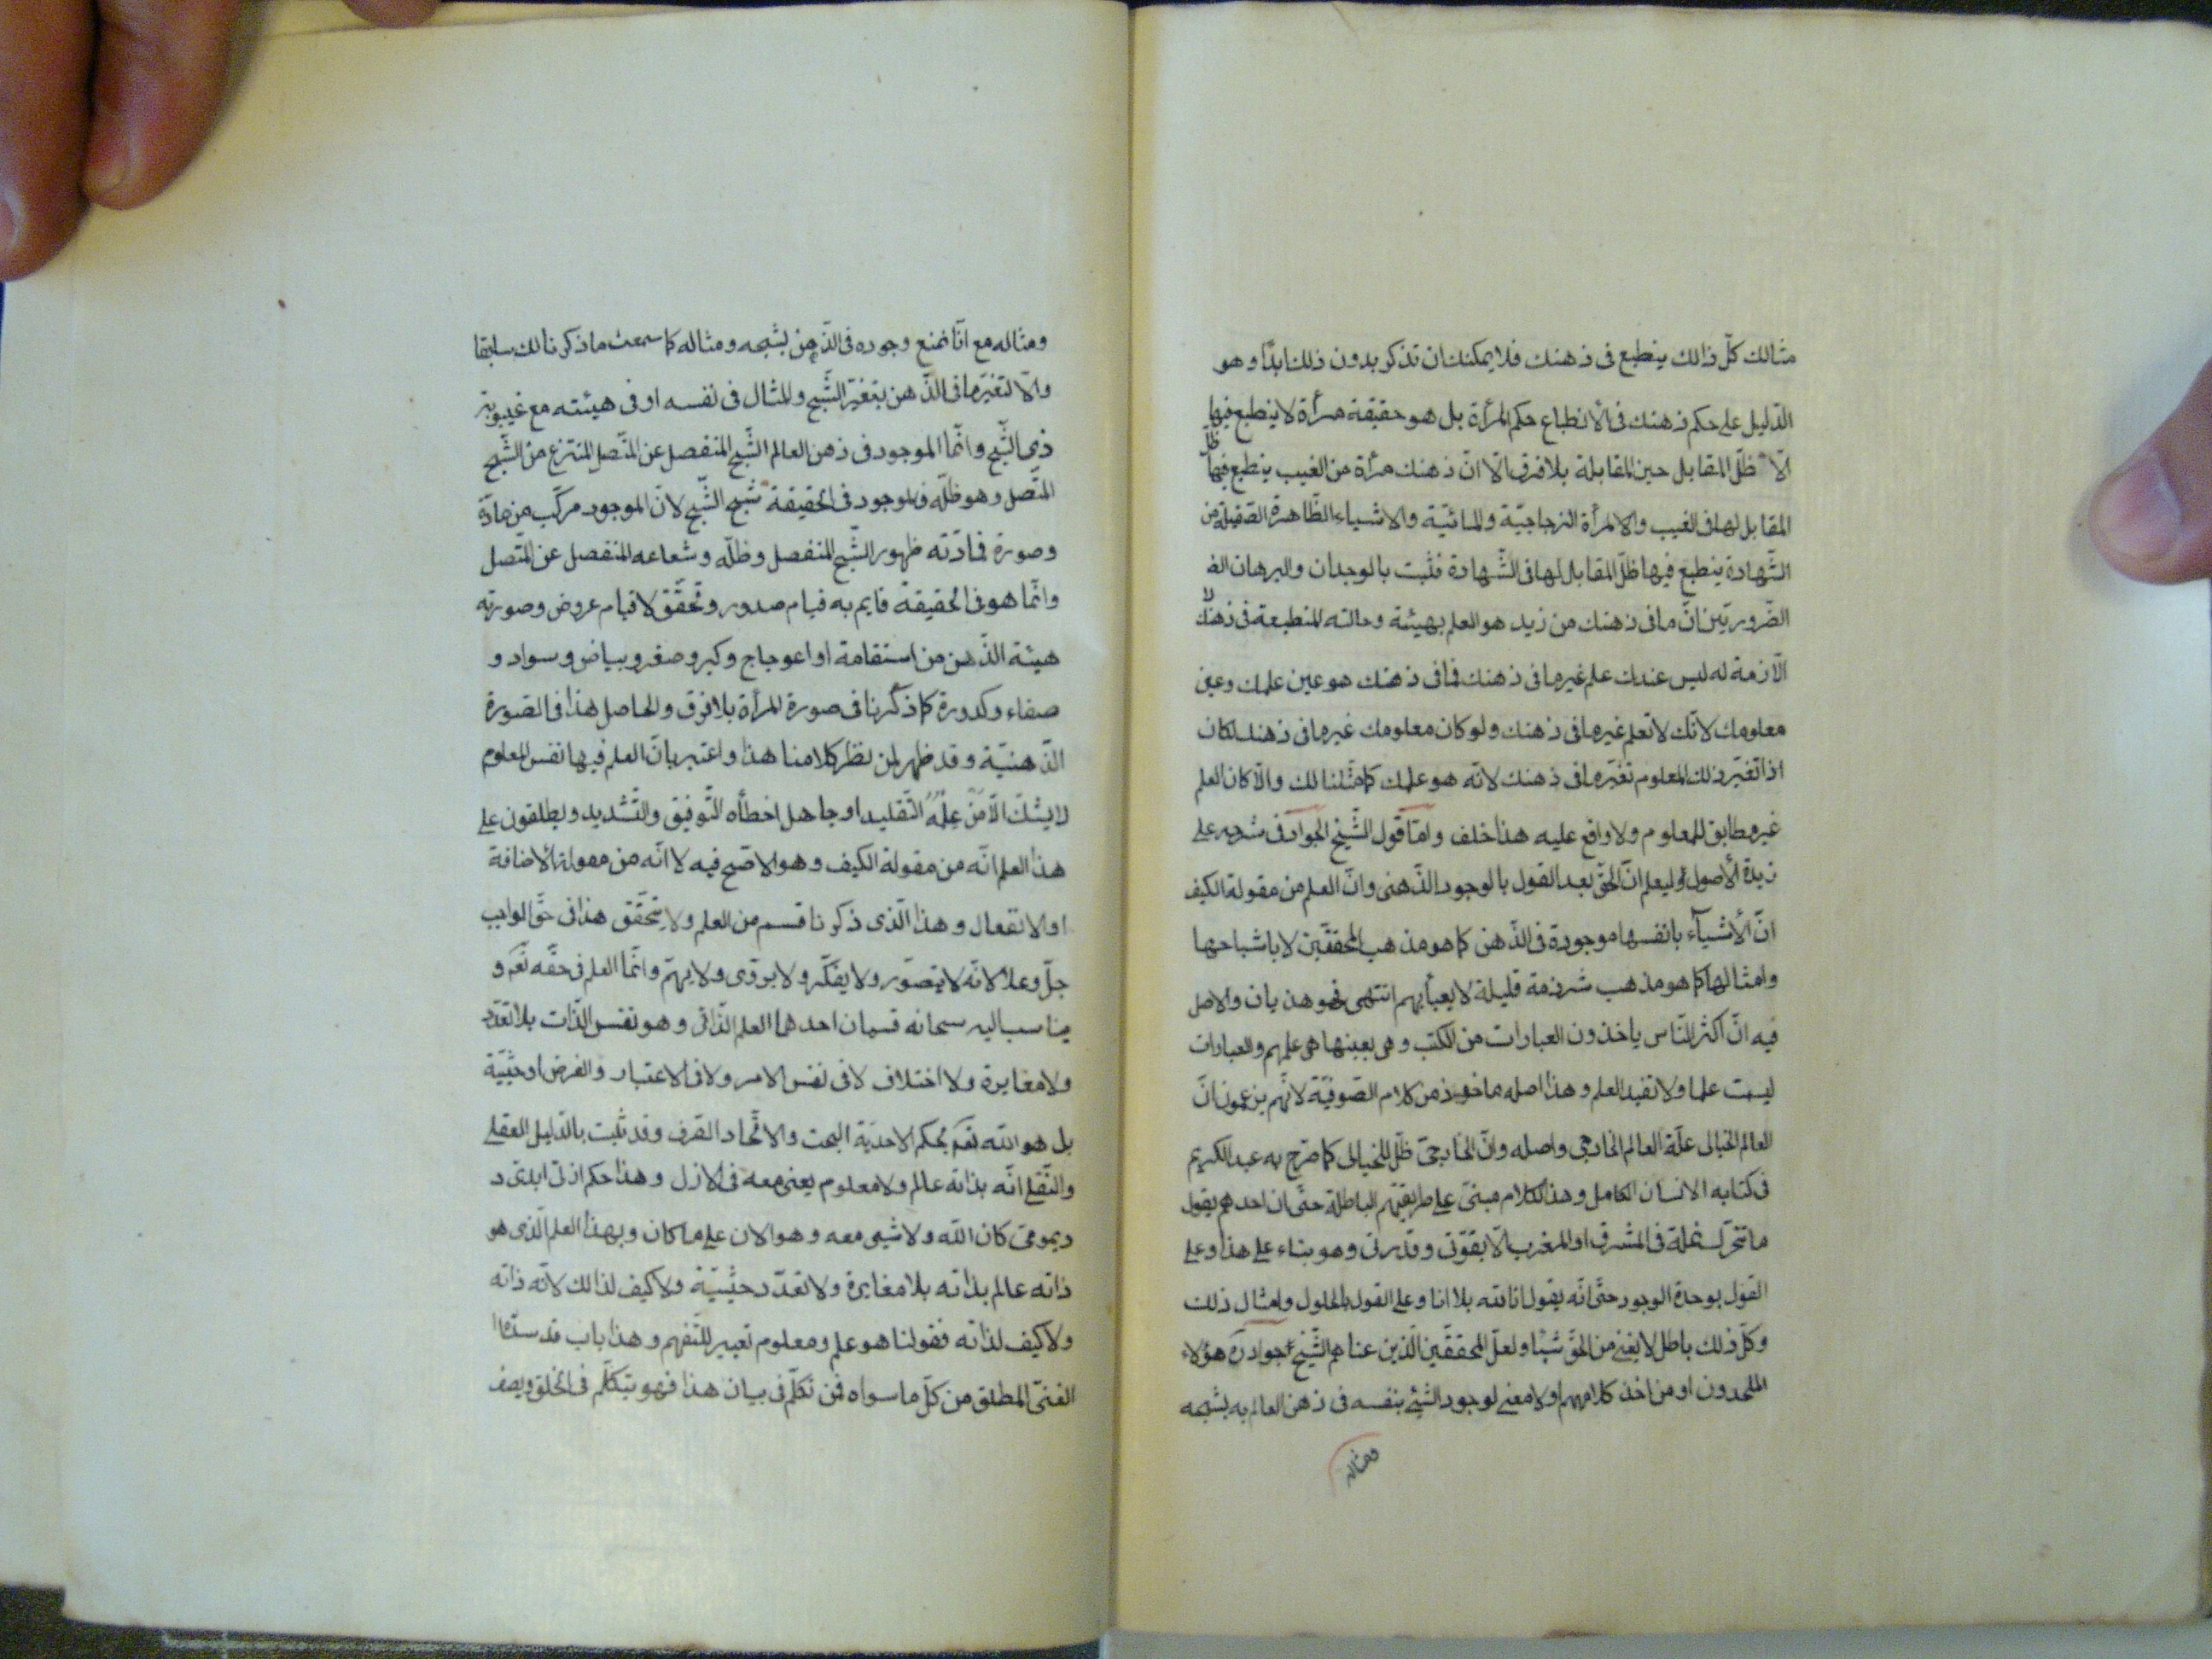 مثالك كلّ ذالك ينطبع فى ذهنك فلا يمكنك ان تذكر بدون ذلك ابدًا وهو
الدّليل على حكم ذهنك فى الأنطباع حكم المرأة بل هو حقيقة مرأة لا ينطبع فيها
الّا ظلّ المقابل حين المقابلة بلا فرق الّا انّ ذهنك مرأة من الغيب ينطبع فيها ظلّ
المقابل لها فى الغيب والا المرأة الزجاجيّة والمائيّة والاشياء الظّاهرة الصّقيلة من
الشّهادة ينطبع فيها ظلّ المقابل لها فى الشّهادة فثبت بالوجدان والبرهان
الضّروريّين انّ ما فى ذهنك من زيد هو العلم بهيئة وحالته المنطبعة فى ذهنك
الّازمة له ليس عندك علم غير ما فى ذهنك فما فى ذهنك هو عين علمك وعين
معلومك لانّك لا تعلم غير ما فى ذهنك ولو كان معلومك غير ما فى ذهنك لكان
اذا تغيّر ذلك المعلوم تغيّر ما فى ذهنك لانّه هو علمك كما مثّلنا لك والّا كان العلم
غير مطابق للمعلوم ولا واقع عليه هذا خلف وامّا قول الشّيخ الجواد فى شرحه على
زبدة الأصول وليعلم انّ الحقّ بعد القول بالوجود الذّهنى وانّ العلم من مقولة الكيف
انّ الأشيآء بانفسها موجودة فى الذّهن كما هو مذهب المحققّين لا باشباحها
وامثالها كما هو مذهب شرذمة قليلة لا يعبأ بهم انتهى فهو هذيان والاصل
فيه انّ اكثر النّاس ياخذون العبارات من الكتب وهى بعينها هى علمهم والعبارات
ليست علما ولا تفيد العلم وهذا اصله ماخوذ من كلام الصّوفيّة لانّهم يزعمون انّ
العالم الخيالى علّة العالم الخارجى واصله وانّ الخارجىّ ظلّ للخيالى كما صّرح به عبد الكريم
فى كتابه الانسان الكامل وهذا الكلام مبنىّ على طريقتهم الباطلة حتّى ان احدهم يقول
ما تتحّرك نملة فى المشرق او المغرب الّا بقوّتى وقدرتى وهو بناء على هذا وعلى
القول بوحدة الوجود حتّى انّه يقول انا الله بلا انا وعلى القول بالحلول وامثال ذلك
وكلّ ذلك باطل لا يغنى من الحقّ شيئًا ولعلّ المحققّين الّذين عناهم الشّيخ جواد ره هؤلاء
الملحدون او من اخذ كلامهم اولا معنى لوجود الشّيئ بنفسه فى ذهن العالم به بشبحه
ومثاله
ومثاله مع انّا نمنع وجوده فى الذّهن بشبحه ومثاله كما سمعت ما ذكرنا لك سابقا
والّا لتغيّر ما فى الذّهن بتغيّر الشّبح والمثال فى نفسه او فى هيئته مع غيبوبة
ذى الشّبح وانّما الموجود فى ذهن العالم الشّبح المنفصل عن المتّصل المنتزع من الشّبح
المتّصل وهو ظلّه فالموجود فى الحقيقة شبح الشّبح لانّ الموجود مركّب من مادّة
وصورة فمادّته ظهور الشّبح المنفصل وظلّه وشعاعه المنفصل عن المتّصل
وانّما هو فى الحقيقة قايم به قيام صدور وتحقّق لا قيام عروض وصورته
هيئة الذّهن من استقامة او اعوجاج وكبر وصغر وبياض وسواد و
صفاء وكدورة كما ذكرنا فى صورة المرأة بلا فرق والحاصل هذا فى الصّورة
الذّهنيّة وقد ظهر لمن نظر كلامنا هذا واعتبر بانّ العلم فيها نفس المعلوم
لا يشكّ الّا مَنْ عِلْمُهُ التّقليد او جاهل اخطأه التّوفيق والتّشديد ويطلقون على
هذا العلم انّه من مقولة الكيف وهو الاصّح فيه لا انّه من مقولة الاضافة
او الانفعال وهذا الّذى ذكرنا قسم من العلم ولا يتحقّق هذا فى حقّ الواجب
جلّ وعلا لانّه لا يتصّور ولا يفكّر ولا يروّى ولا يهمّ وانّما العلم فى حقّه نعم و
ينا سب اليه سبحانه قسمان احدهما العلم الذّاتى وهو نفس الذّات بلا تعدّد
ولا مغايرة ولا اختلاف لا فى نفس الامر ولا فى الاعتبار والفرض او حيثيّة
بل هو الله تعم بحكم الاحديّة البحت والاتّحاد الصّرف وقد ثبت بالدّليل العقلى
والنّقلى انّه بذاته عالم ولا معلوم يعنى معه فى الازل وهذا حكم ازلىّ ابدىّ د
ديمومى كان الله ولا شيئ معه وهو الان على ما كان وبهذا العلم الّذى هو
ذاته عالم بذاته بلا مغايرة ولا تعدّد حيثيّة ولا كيف لذالك لانّه ذاته
ولا كيف لذاته فقولنا هو علم ومعلوم تعبير للتّفهم وهذا باب قد سدّه
الغنىّ المطلق من كلّ ما سواه فمن تكلّم فى بيان هذا فهو يتكلّم فى الخلق ويصف